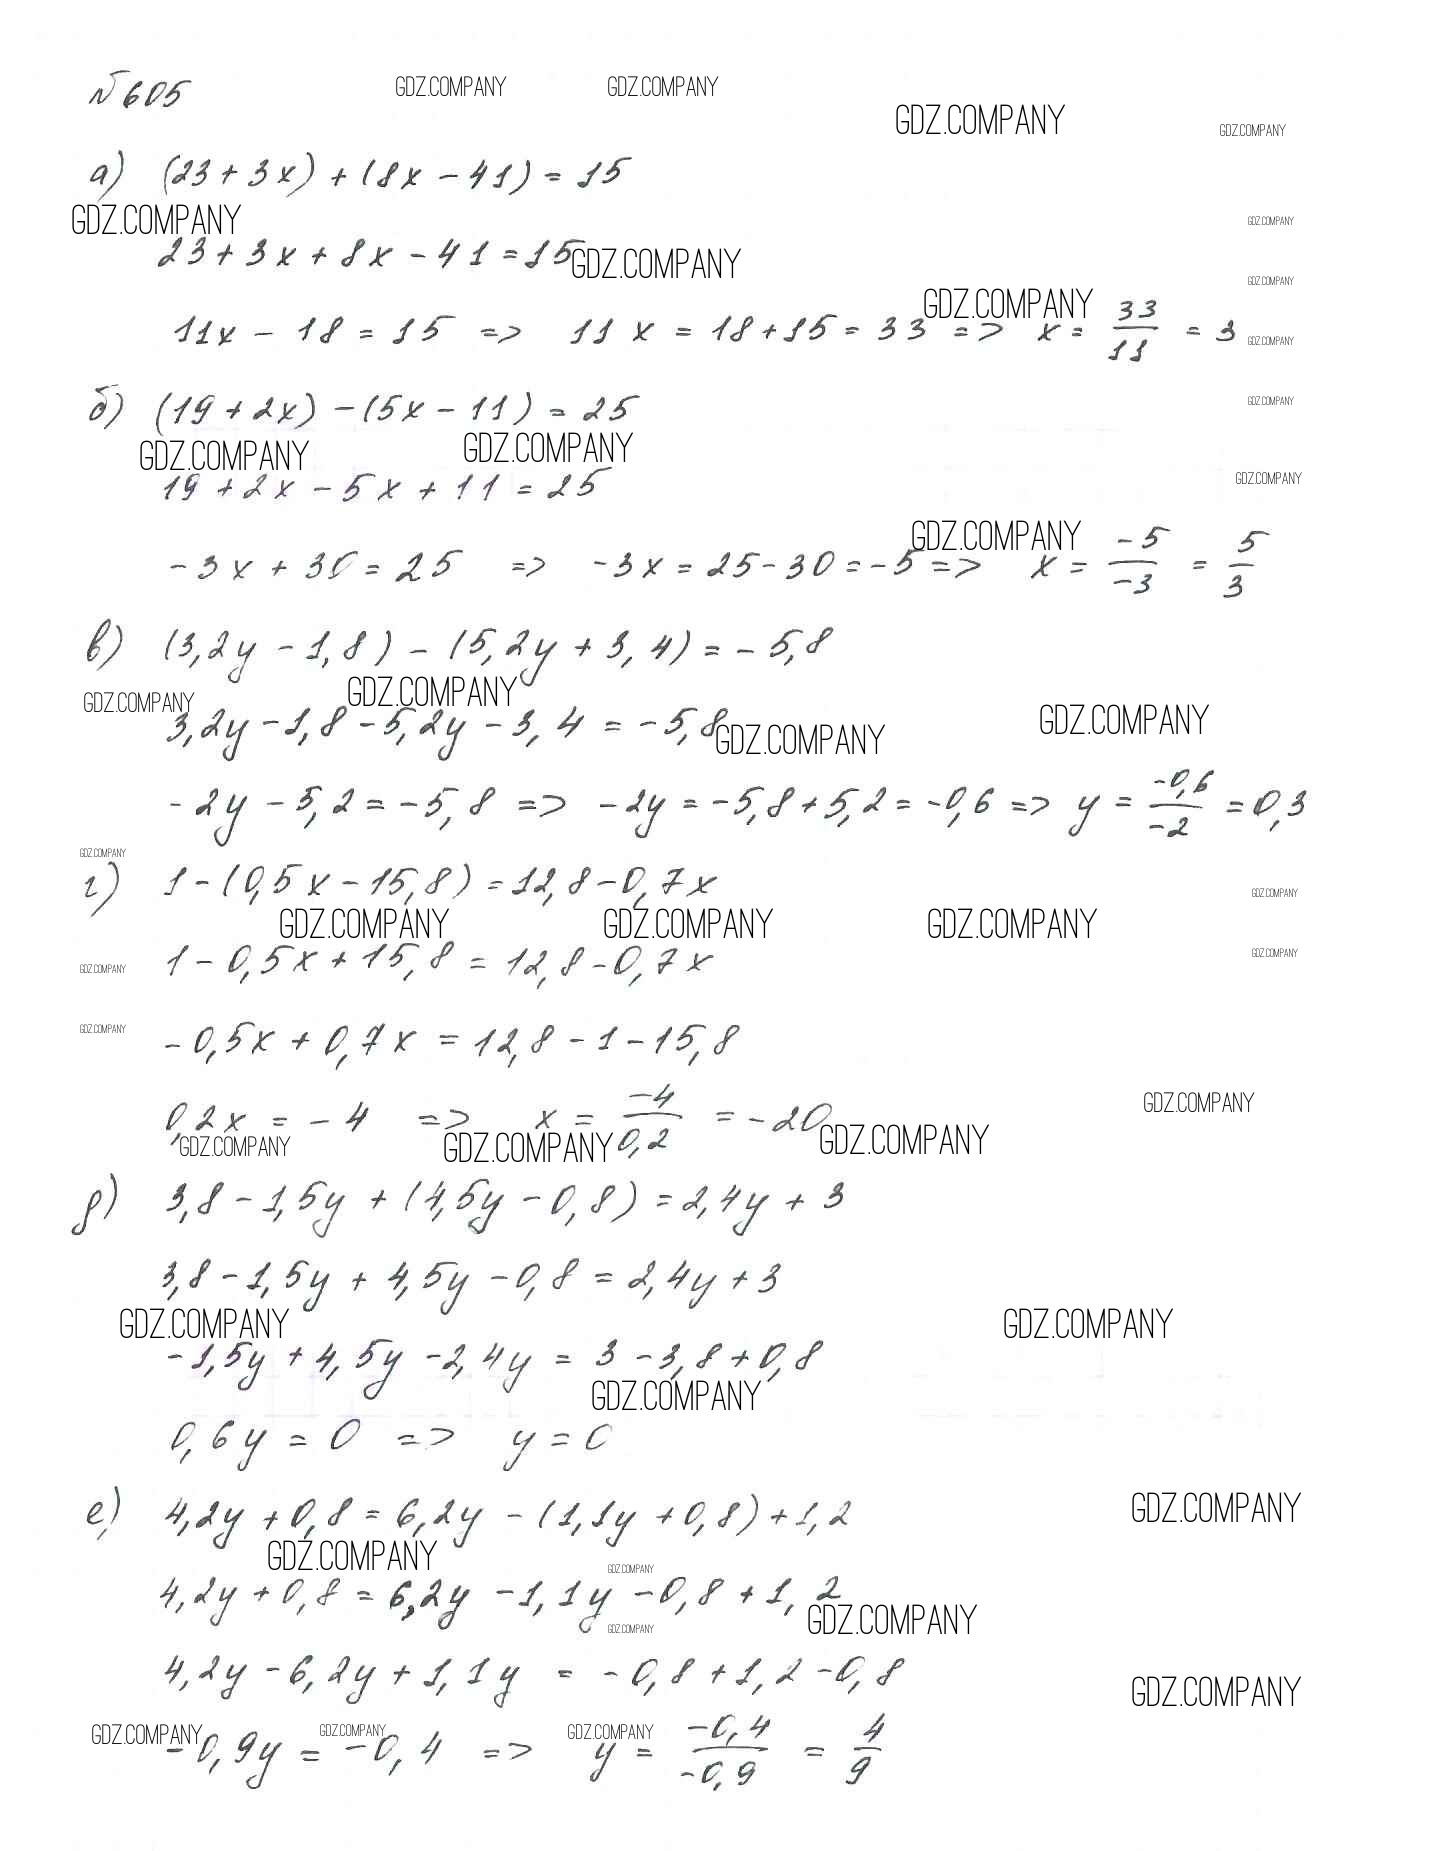 №605
GDZ.COMPANY GDZ.COMPANY
GDZ.COMPANY
GDZ.COMPANY
а) (23+3x)+(8x-41)=15
GDZ.COMPANY
GDZ.COMPANY
23+3x+8x-41=15
GDZ.COMPANY
GDZ.COMPANY
GDZ.COMPANY
11x-18=15 => 11x=18+15=33 => x=33/11=3
GDZ.COMPANY
б) (19+2x)-(5x-11)=25
GDZ.COMPANY
GDZ.COMPANY GDZ.COMPANY
19+2x-5x+11=25
GDZ.COMPANY
GDZ.COMPANY
-3x+30=25 => -3x=25-30=-5 => x=-5/-3=5/3
в) (3,2y-1,8)-(5,2y+3,4)=-5,8
GDZ.COMPANY GDZ.COMPANY
3,2y-1,8-5,2y-3,4=-5,8
GDZ.COMPANY GDZ.COMPANY
-2y-5,2=-5,8 => -2y=-5,8+5,2=-0,6 => y=-0,6/-2=0,3
GDZ.COMPANY
г) 1-(0,5x-15,8)=12,8-0,7x
GDZ.COMPANY
GDZ.COMPANY GDZ.COMPANY GDZ.COMPANY
1-0,5x+15,8=12,8-0,7x
GDZ.COMPANY GDZ.COMPANY
GDZ.COMPANY
-0,5x+0,7x=12,8-1-15,8
GDZ.COMPANY
0,2x=-4 => x=-4/0,2=-20
GDZ.COMPANY GDZ.COMPANY GDZ.COMPANY
д) 3,8-1,5y+(4,5y-0,8)=2,4y+3
3,8-1,5y+4,5y-0,8=2,4y+3
GDZ.COMPANY GDZ.COMPANY
-1,5y+4,5y-2,4y=3-3,8+0,8
GDZ.COMPANY
0,6y=0 => y=0
е) 4,2y+0,8=6,2y-(1,1y+0,8)+1,2
GDZ.COMPANY
GDZ.COMPANY GDZ.COMPANY
4,2y+0,8=6,2y-1,1y-0,8+1,2
GDZ.COMPANY GDZ.COMPANY
4,2y-6,2y+1,1y=-0,8+1,2-0,8
GDZ.COMPANY
GDZ.COMPANY GDZ.COMPANY GDZ.COMPANY
-0,9y=-0,4 => y=-0,4/-0,9=4/9